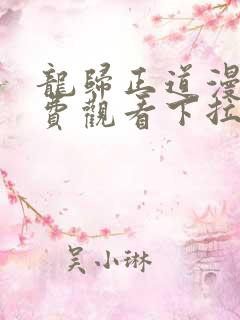 龍歸正道漫
費觀看下拉
吴小琳